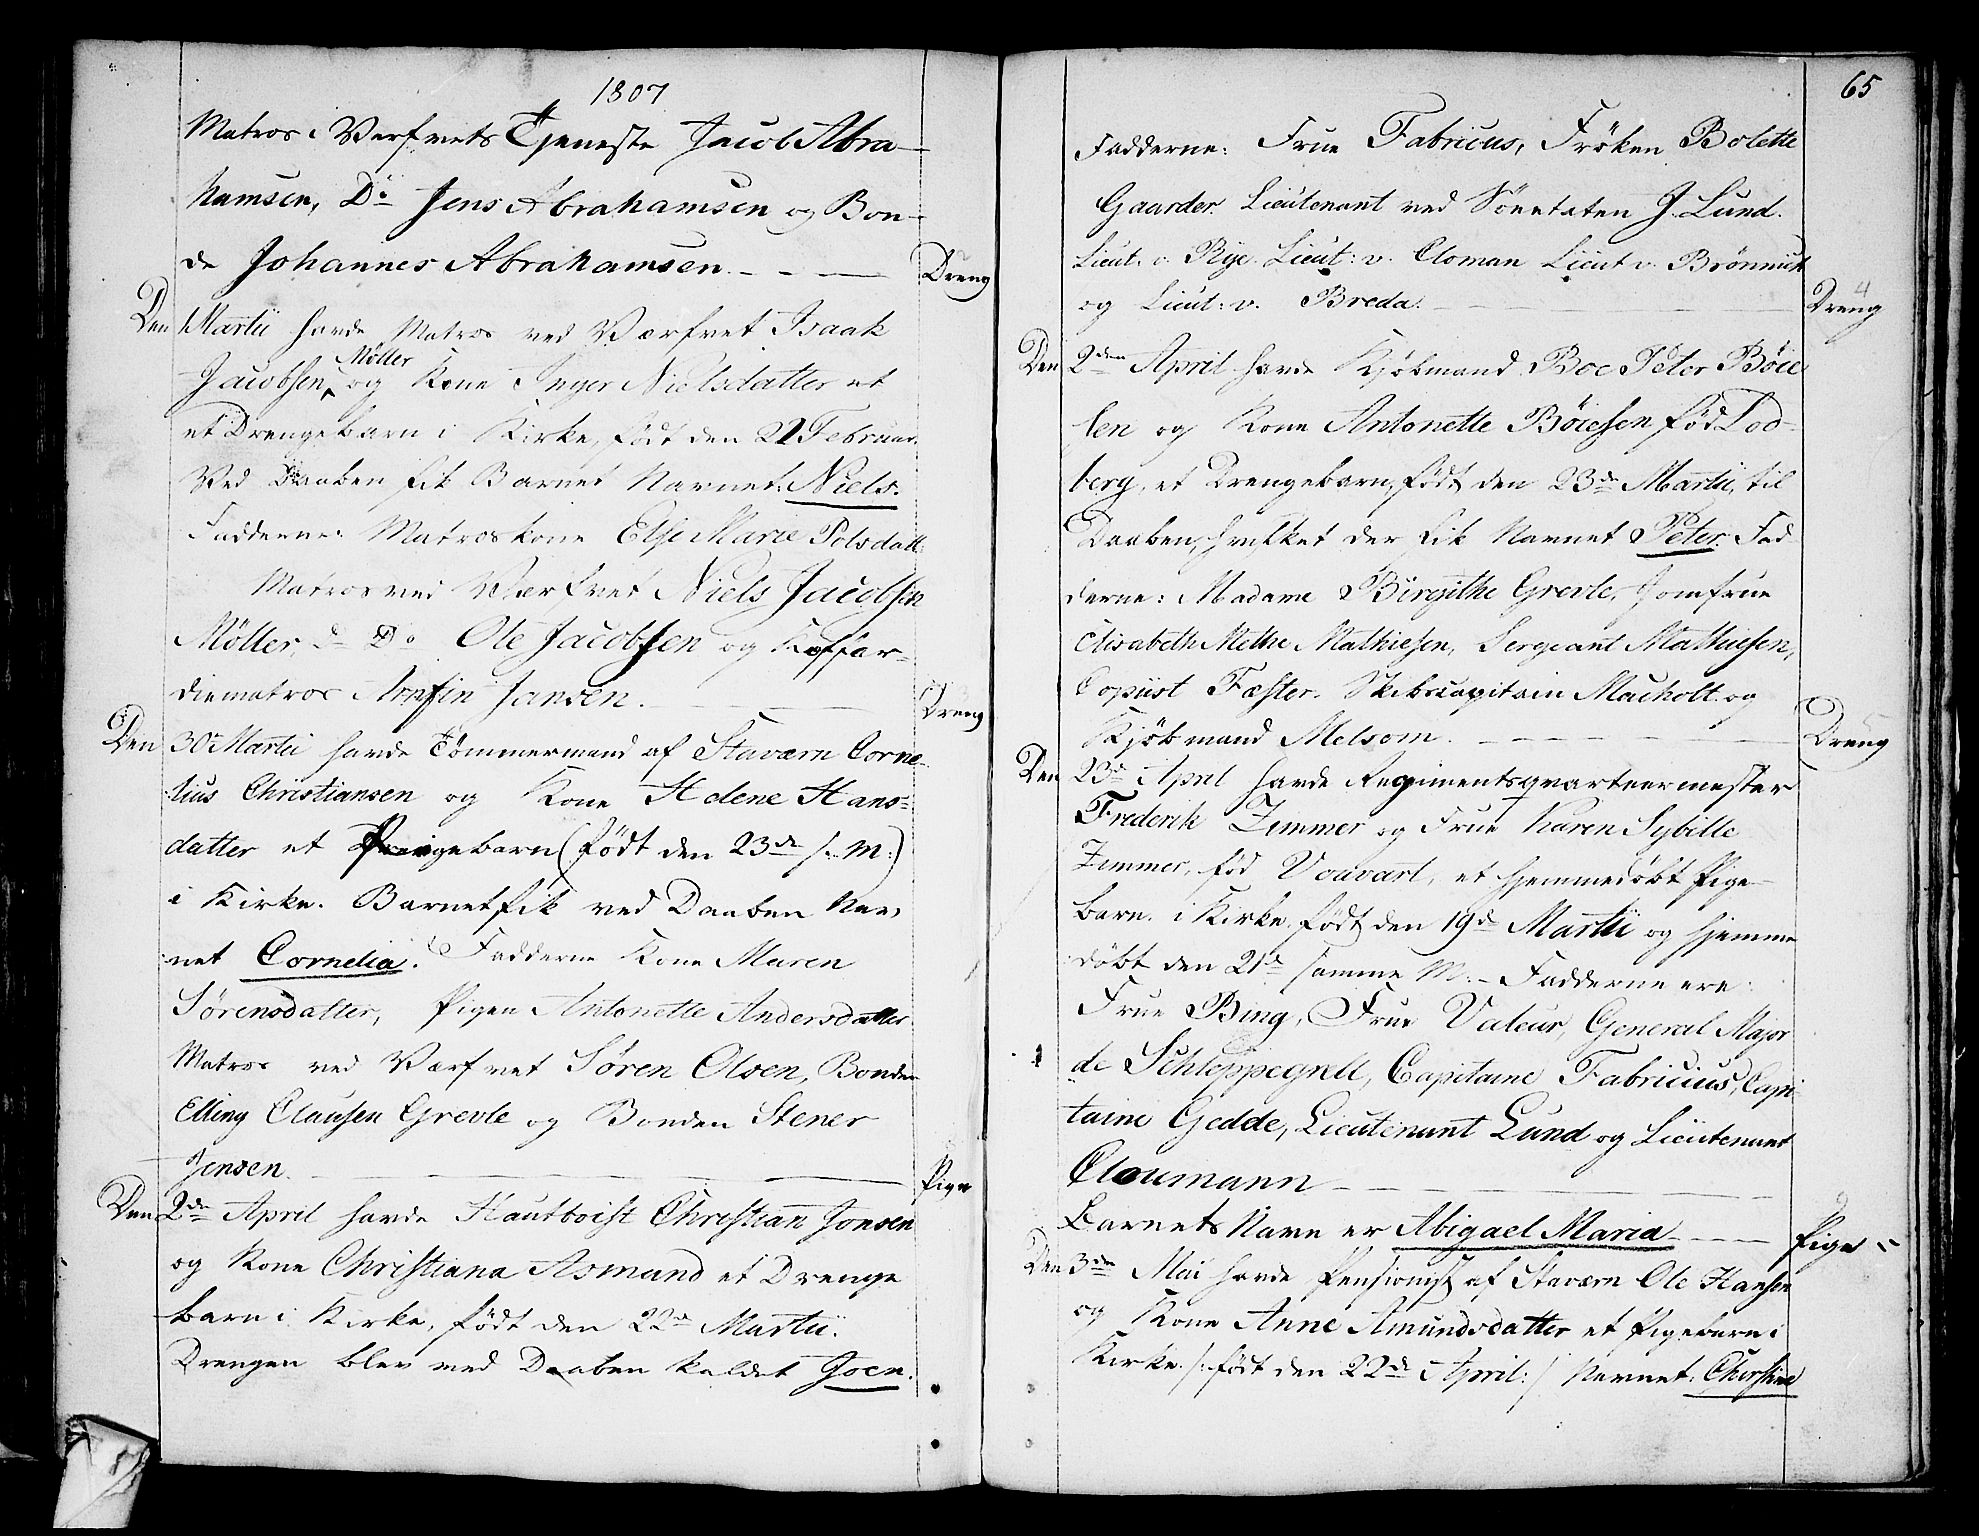 1807
Matros i Verfvets Tjeneste Jacob Abra-
hamsen, Do Jens Abrahamsen og Bon-
de Johannes Abrahamsen. Dreng
Den Martii havde Matros ved Værfvet Isaak
Møller
Jacobsen, og Kone Inger Nielsdatter et
et Drengebarn i Kirke, født den 22 Februar.
Ved Daaben fik Barnet Navnet: Niels.
Fadderne: Matroskone Else Marie Polsdatt
Matros ved Værfvet Niels Jacobsen
Møller, Do Ole Jacobsen og Koffar-
diematros Arnfin Jansen. Dreng
Den 30te Martii havde Tømmermand af Staværn Corne-
lius Christiansen og Kone Helene Hans-
datter et Pigebarn (født den 23de s. M:)
i Kirke. Barnet fik ved Daaben Nav-
net Cornelia. Fadderne Kone Maren
Sørensdatter, Pigen Antonette Andersdatter
Matros ved Værfvet Søren Olsen, Bonden
Elling Clausen Grevle og Bonden Stener
Jensen. Pige
Den 2de April havde Hautboist Christian Jonsen
og Kone Christiana Asmund et Drenge
barn i Kirke, født den 22de Martii.
Drengen blev ved Daaben kaldet Joen.
65
Fadderne: Frue Fabricus, Frøken Bolette
Gaarder. Lieutenant ved Søeetaten J. Lund.
Lieut. v. Rye. Lieut: v. Cloman Lieut v. Brønnich
og Lieut: v. Breda. Dreng
4
Den 2den April havde Kjøbmand Boe Peter Bøie
sen og Kone Antonette Bøiesen fød Lod-
berg, et Drengebarn, født den 23de Martii, til
Daaben, hvilket der fik Navnet Peter. Fad
derne: Madame Birgithe Grevle, Jomfrue
Elisabeth Methe Mathiesen, Sergeant Mathiesen,
Copiist Fæster. Skibscapitain Macholt og
Kjøbmand Melsom. Dreng
Den 23de April havde Regimentsqvarteermester
Frederik Zimmer og Frue Karen Sybille
Zimmer, fød Vouvart, et hjemmedøbt Pige-
barn i Kirke, født den 19de Martii og hjemme
døbt den 21de samme M: - Fadderne ere:
Frue Bing, Frue Valeur, General Major
de Schleppegrell, Capitaine Fabricius, Capi
taine Gedde, Lieutenant Lund og Lieutenant
Cloumann
Barnets Navn er Abigael Maria Pige
Den 3die Mai havde Pensionist af Staværn Ole Hansen
og Kone Anne Amundsdatter et Pigebarn i
Kirke /: født den 22de April :/ Navnet: Christine